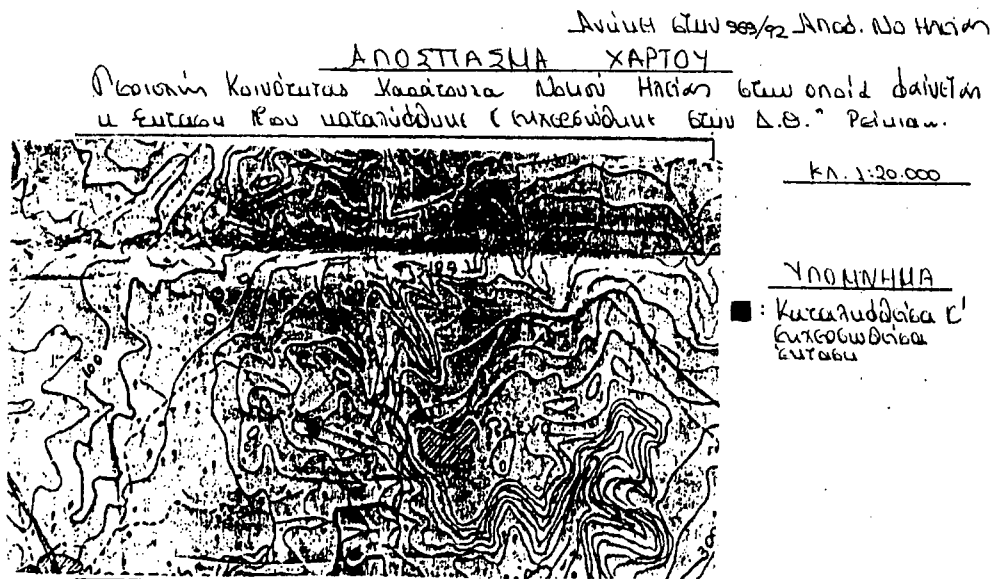 Ανήκει στην 969/92 Αποφ. Νο Ηλείας
ΑΠΟΣΠΑΣΜΑ ΧΑΡΤΟΥ
Περιοχής Κοινότητας Νομού Ηλείας στην οποία φαίνεται
η έκταση που καταλήφθηκε εκχερσώθηκε στην Δ.Θ. "
ΚΛ. 1:20.000
ΥΠΟΜΝΗΜΑ
: Καταληφθείσα κ'
εκχερσωθείσα
έκταση
100